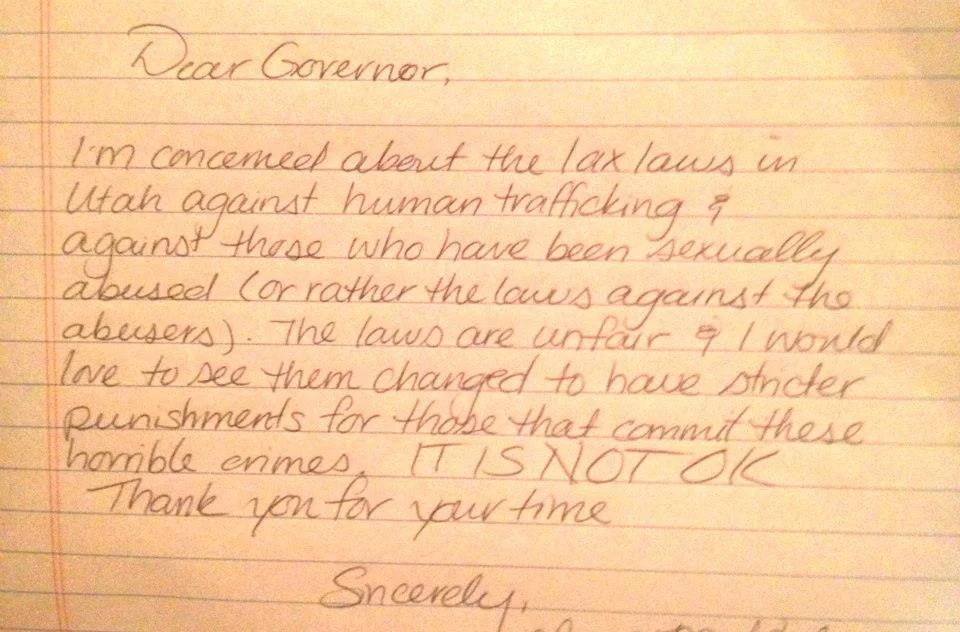 Dear Governor,
I'm concerned about the lax laws in
Utah against human trafficking &
against those who have been sexually
abused (or rather the laws against the
abusers). The laws are unfair & I would
love to see them changed to have stricter
punishments for those that commit these
horrible crimes. IT IS NOT OK
Thank you for your time
Sincerely,